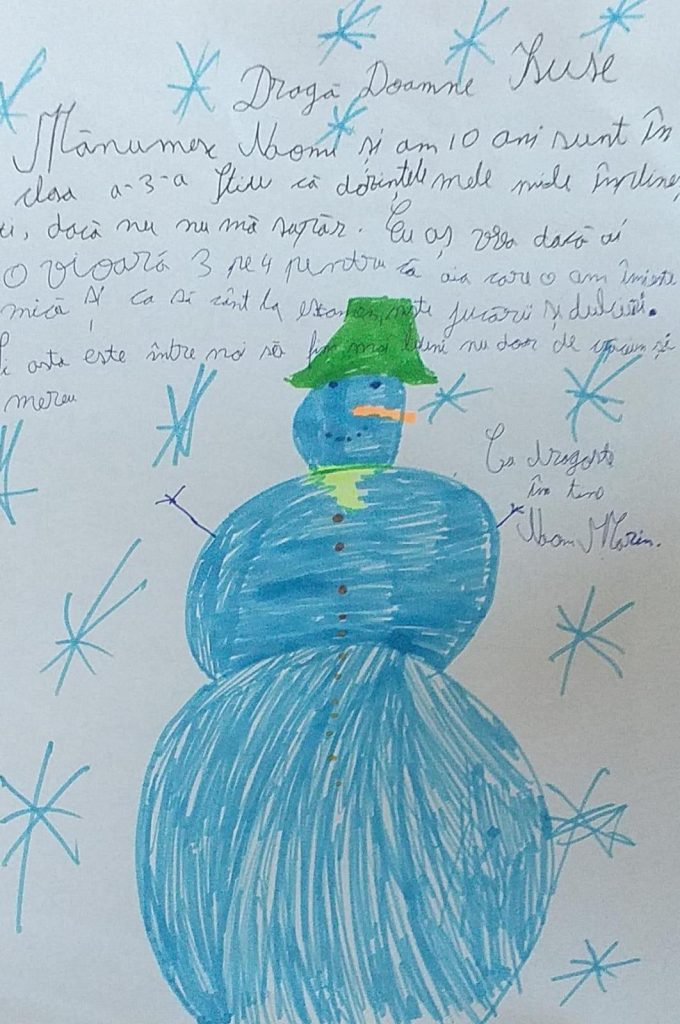 Dragă Doamne Isuse
Mănumesc Naomi și am 10 ani sunt în
clasa a-3-a Știu că dorințele mele mi le împlineș
ti, dacă nu nu mă supăr. Eu aș vrea dacă ai
o vioară 3 pe 4 pentru că aia care o am îmi este
mică și ca să cânt la examen, niște jucării și dulciuri.
Și asta este între noi să fim mai buni nu doar de și
mereu
Cu dragoste
în tine
Naomi Marin.